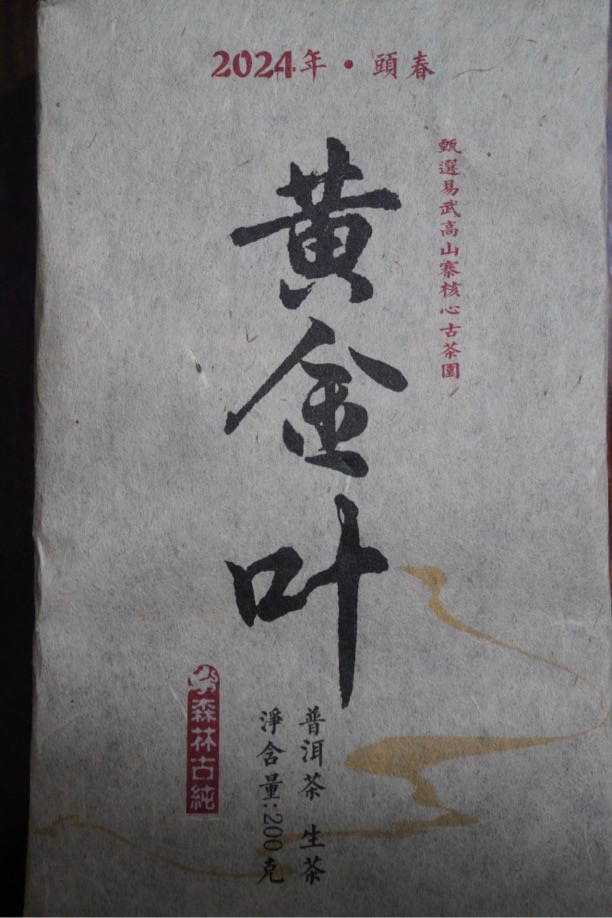 2024年·頭春
甄選易武高山寨核心古茶園
黄金叶
普洱茶 生茶
淨含量:200克
森林古純